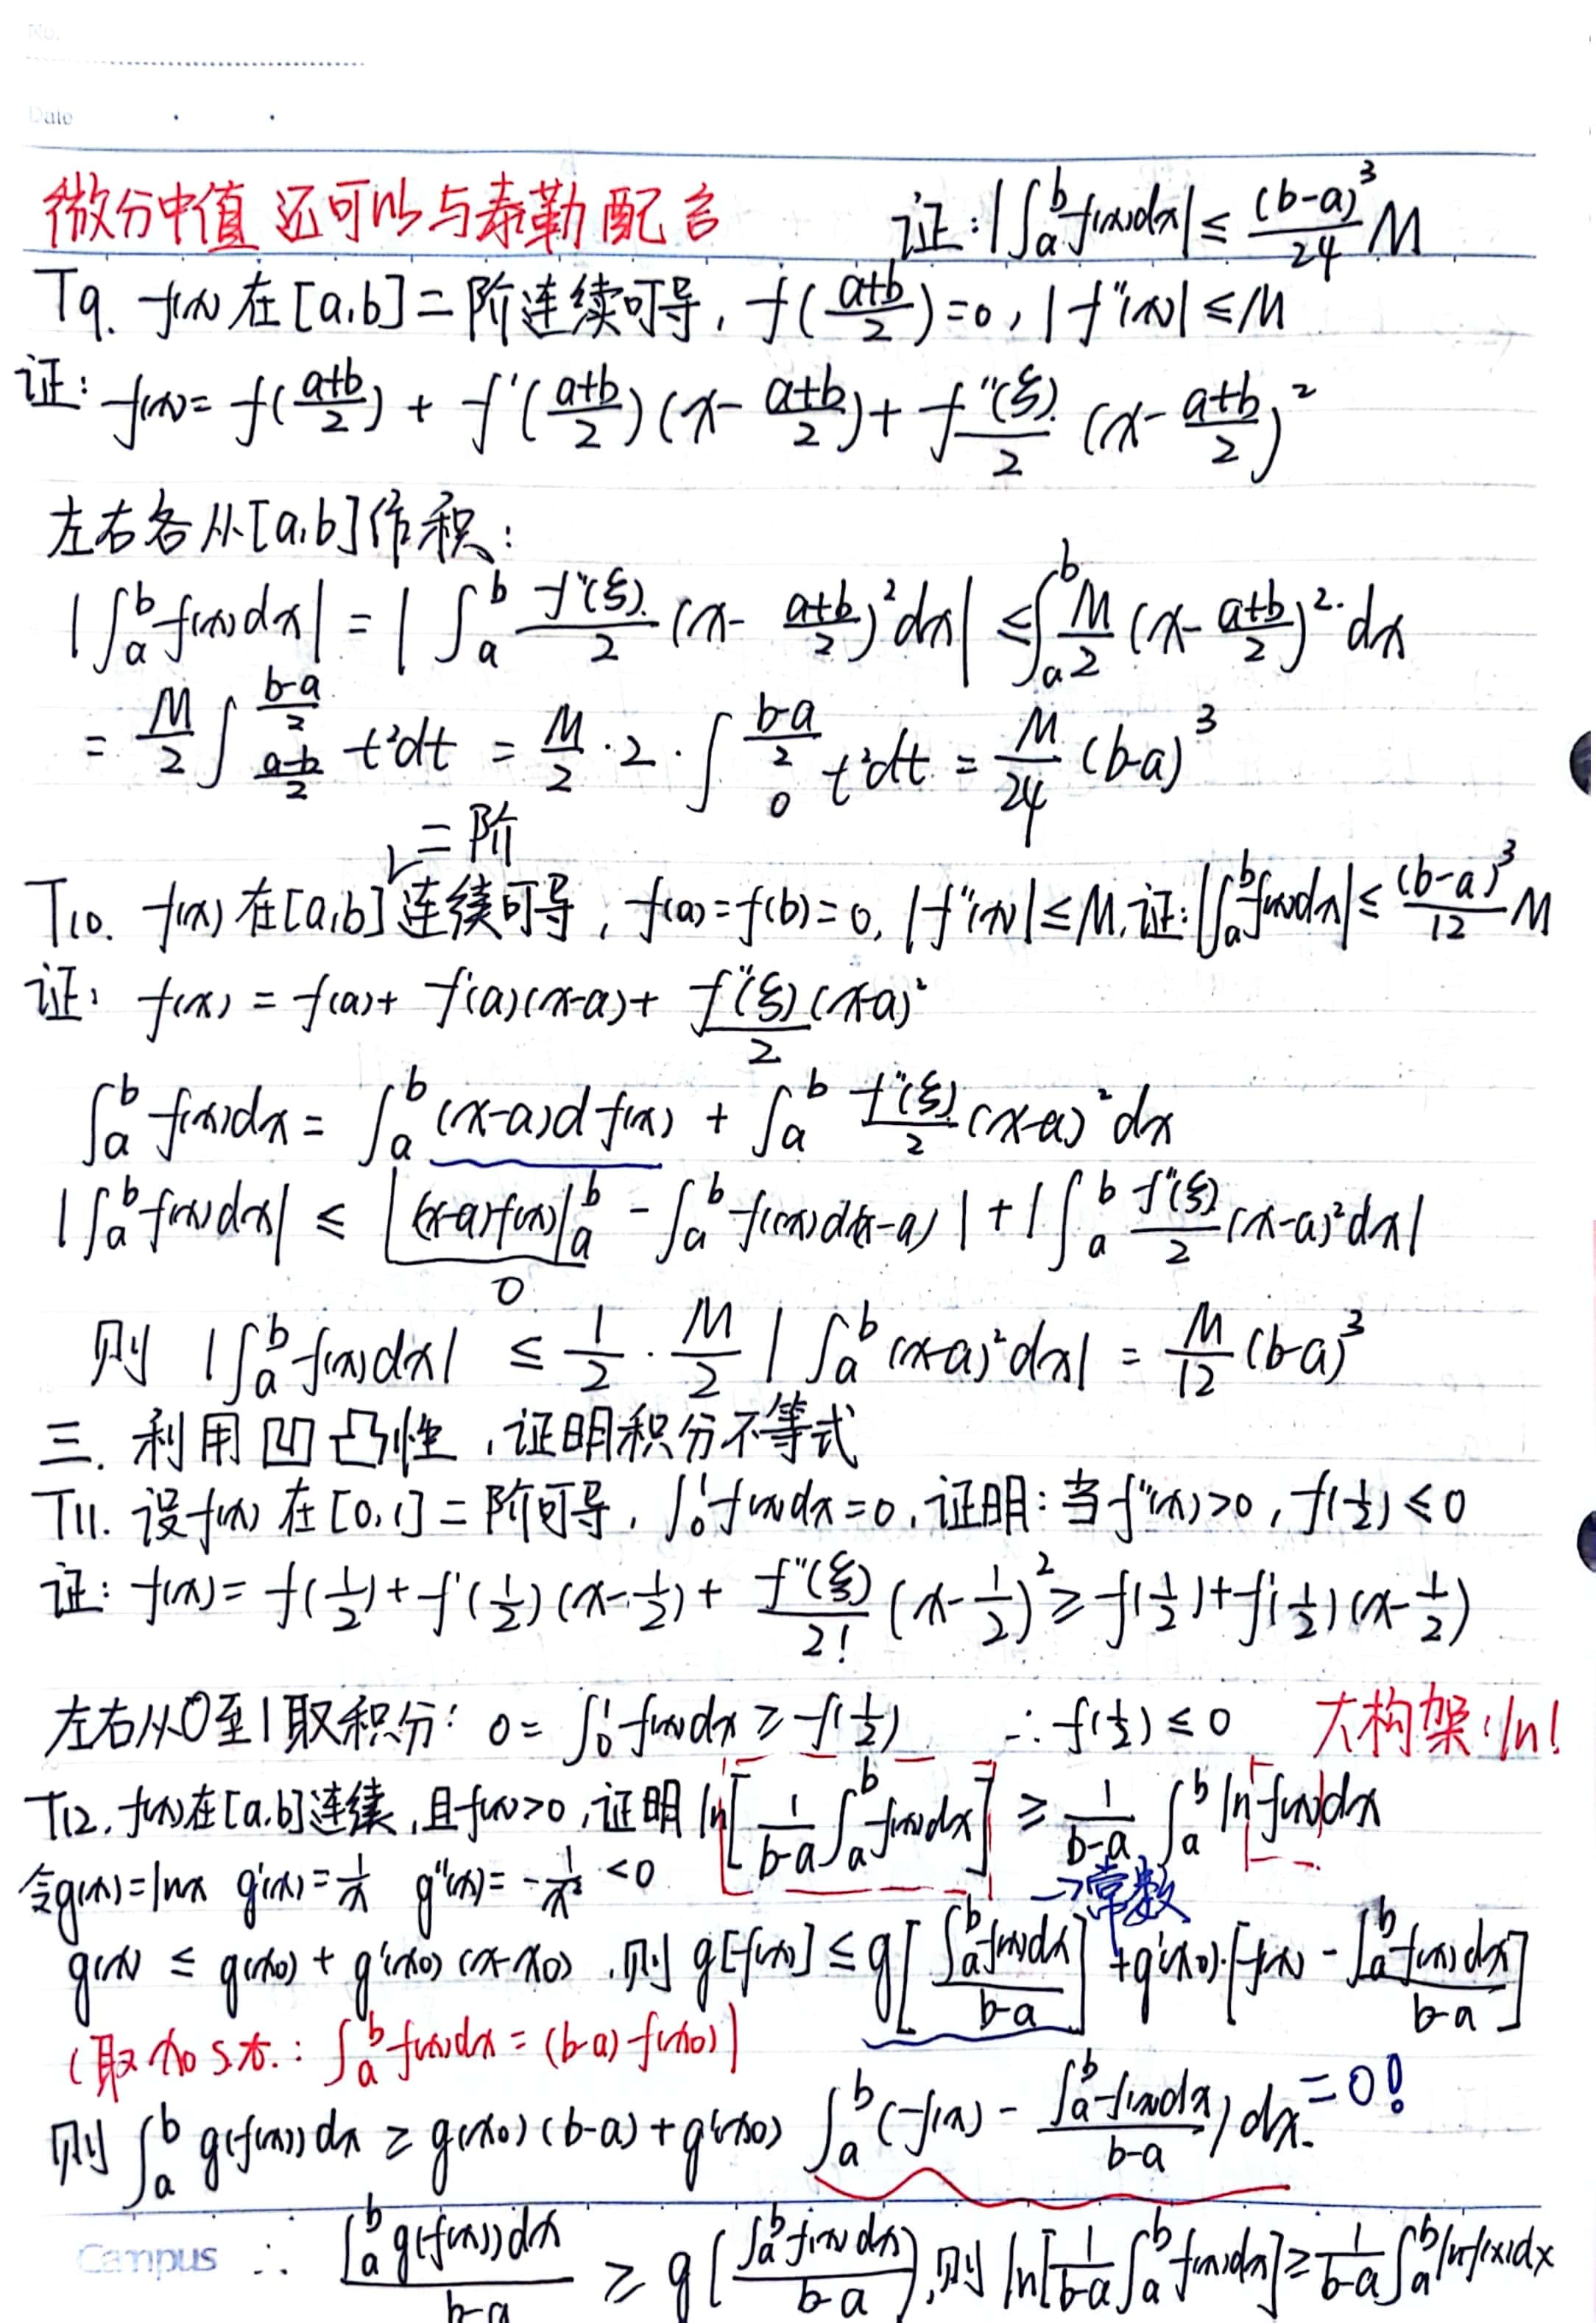 No.
Date
微分中值 还可以与泰勒配合 证:|∫_a^b f(x)dx| ≤ (b-a)³/24 M
T9. f(x) 在 [a,b] 二阶连续可导, f((a+b)/2)=0, |f''(x)| ≤ M
证: f(x)= f((a+b)/2) + f'((a+b)/2)(x-(a+b)/2) + f''(ξ)/2 (x-(a+b)/2)²
左右各从[a,b]作积:
|∫_a^b f(x)dx| = |∫_a^b f''(ξ)/2 (x-(a+b)/2)² dx| ≤ ∫_a^b M/2 (x-(a+b)/2)² dx
= M/2 ∫_{(a-b)/2}^{(b-a)/2} t²dt = M/2 · 2 · ∫_0^{(b-a)/2} t²dt = M/24 (b-a)³
二阶
T10. f(x) 在[a,b]连续可导, f(a)=f(b)=0, |f''(x)| ≤ M, 证:|∫_a^b f(x)dx| ≤ (b-a)³/12 M
证: f(x) = f(a)+ f'(a)(x-a)+ f''(ξ)/2 (x-a)²
∫_a^b f(x)dx = ∫_a^b (x-a)d f(x) + ∫_a^b f''(ξ)/2 (x-a)² dx
|∫_a^b f(x)dx| ≤ |(x-a)f(x)|_a^b - ∫_a^b f(x)d(x-a)| + |∫_a^b f''(ξ)/2 (x-a)²dx|
0
则 |∫_a^b f(x)dx| ≤ 1/2 · M/2 |∫_a^b (x-a)²dx| = M/12 (b-a)³
三. 利用凹凸性, 证明积分不等式
T11. 设f(x) 在[0,1]二阶可导, ∫_0^1 f(x)dx=0, 证明: 当f''(x)>0, f(1/2) ≤ 0
证: f(x)= f(1/2)+f'(1/2)(x-1/2)+ f''(ξ)/2! (x-1/2)² ≥ f(1/2)+f'(1/2)(x-1/2)
左右从0至1取积分: 0= ∫_0^1 f(x)dx ≥ f(1/2) ∴ f(1/2) ≤ 0 大构架:ln!
T12. f(x)在[a,b]连续,且f(x)>0, 证明 ln[1/(b-a) ∫_a^b f(x)dx] ≥ 1/(b-a) ∫_a^b ln f(x)dx
令g(x)=lnx g'(x)=1/x g''(x)=-1/x² <0 →常数
g(x) ≤ g(x0) + g'(x0)(x-x0), 则 g[f(x)] ≤ g[∫_a^b f(x)dx/(b-a)] + g'(x0)·[f(x) - ∫_a^b f(x)dx/(b-a)]
(取x0 s.t.: ∫_a^b f(x)dx = (b-a)f(x0))
则 ∫_a^b g(f(x))dx ≥ g(x0)(b-a)+g'(x0) ∫_a^b (f(x) - ∫_a^b f(x)dx/(b-a)) dx =0!
Campus ∴ ∫_a^b g(f(x))dx/(b-a) ≥ g(∫_a^b f(x)dx/(b-a)), 则 ln[1/(b-a) ∫_a^b f(x)dx] ≥ 1/(b-a) ∫_a^b ln f(x)dx